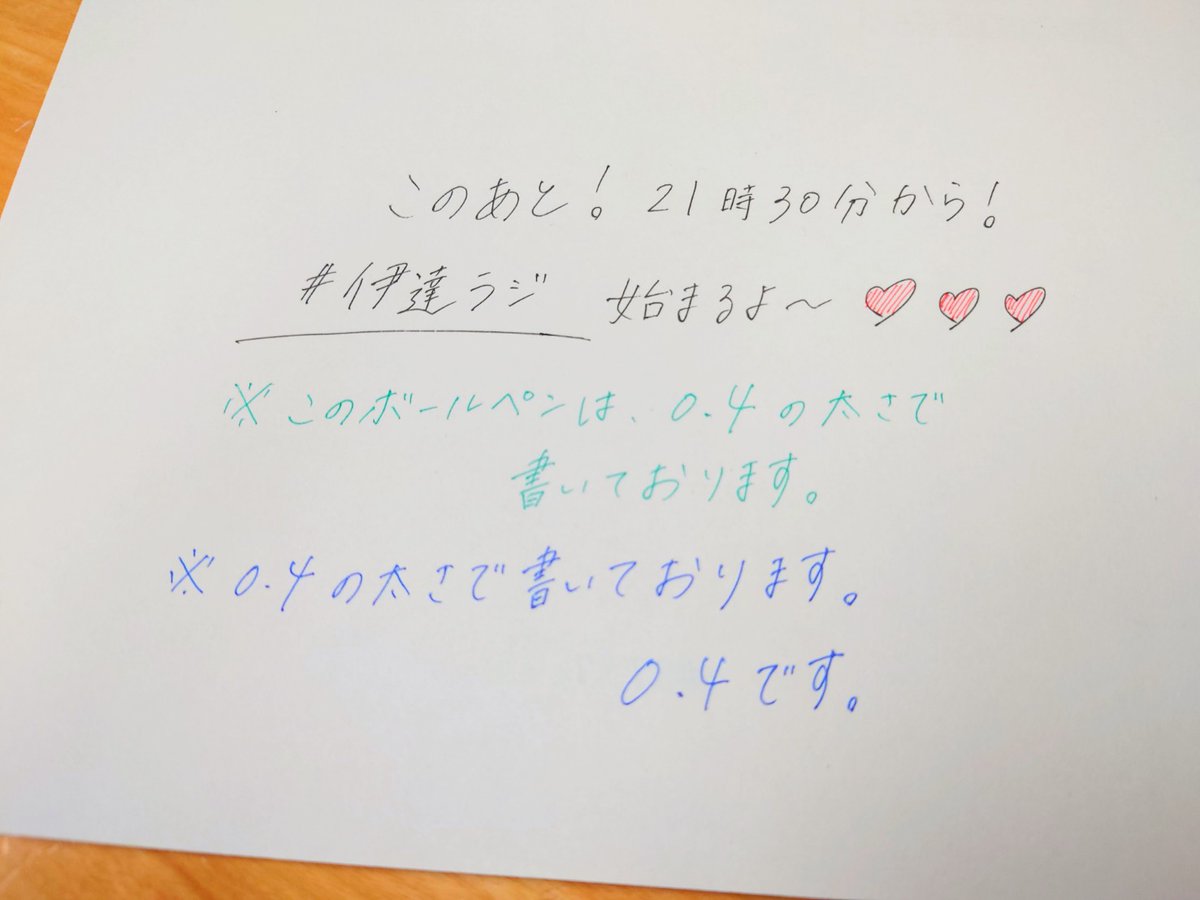 このあと! 21時30分から!
#伊達ラジ 始まるよ〜♡♡♡
※このボールペンは、0.4の太さで
書いております。
※0.4の太さで書いております。
0.4です。